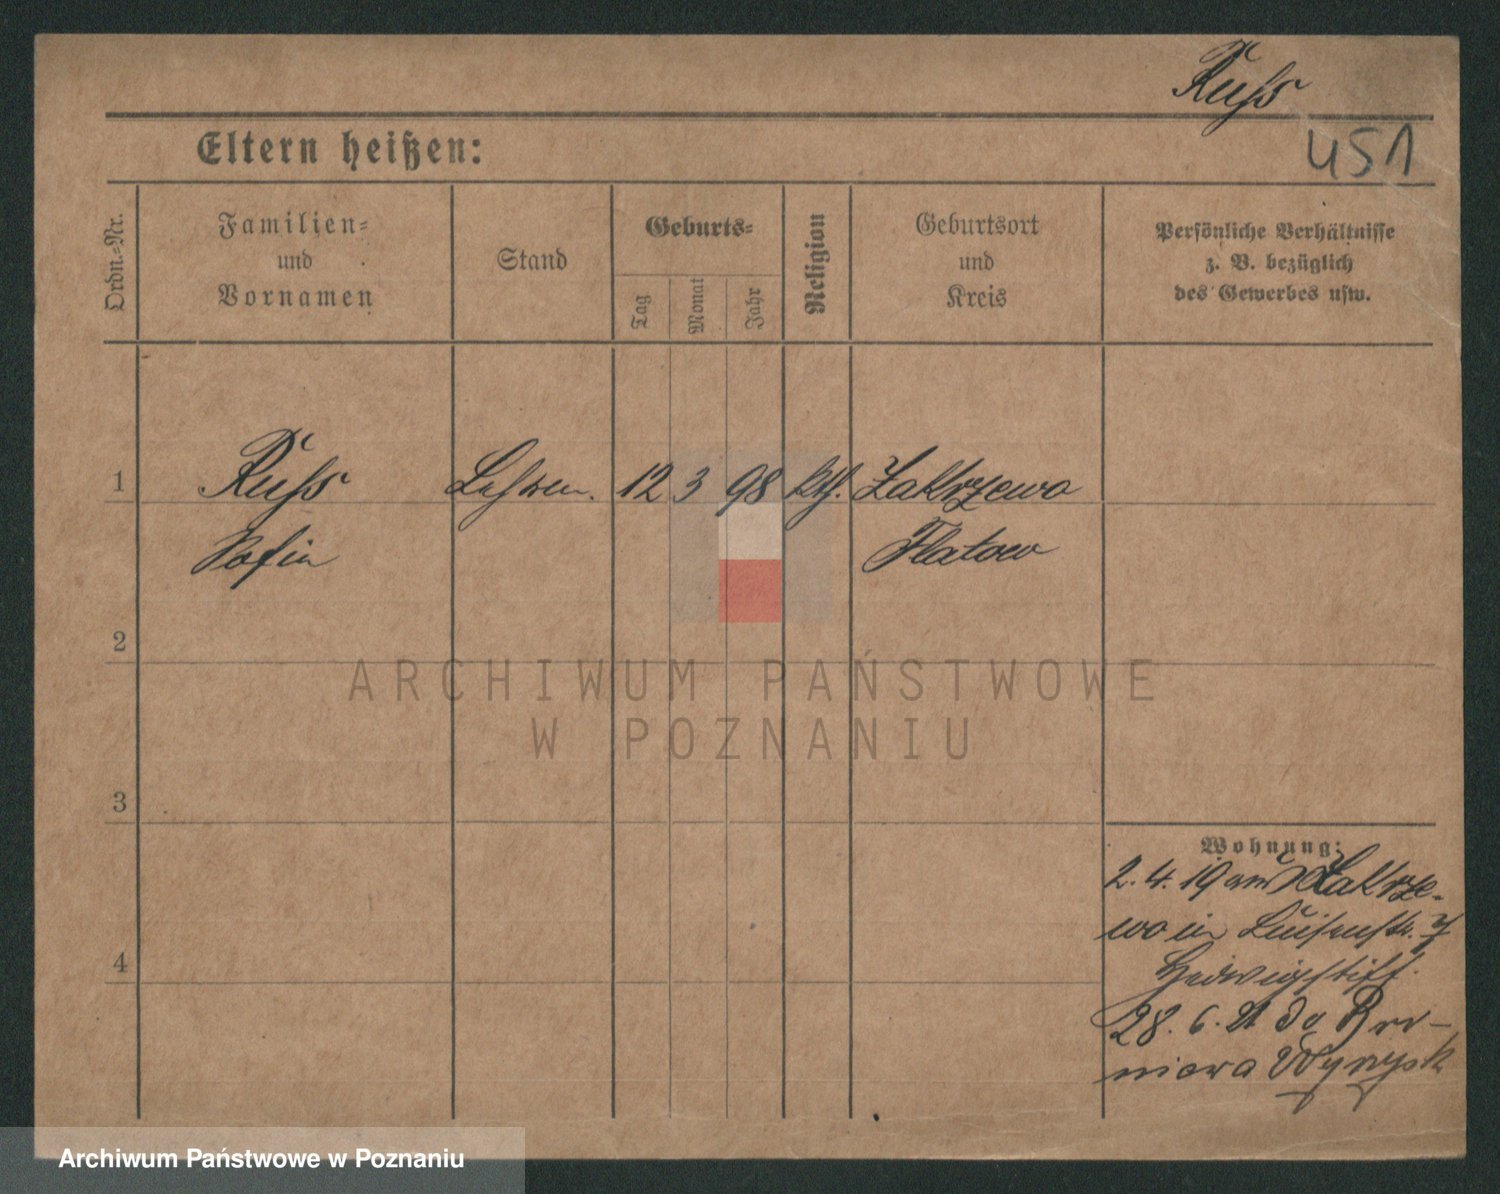 Russ
451
Eltern heißen:
Ordn.-Nr.
Familien-
und
Vornamen
Stand
Geburts-
Tag
Monat
Jahr
Religion
Geburtsort
und
Kreis
Persönliche Verhältnisse
z. B. bezüglich
des Gewerbes usw.
1
Russ
12
3
98
kth.
Zakrzewo
Sofia
Flatow
2
ARCHIWUM PAŃSTWOWE
W POZNANIU
3
Wohnung:
2. 4. 19 Zakrze-
wo in Luisenstr. 7
Hedwigstift.
28. 6. 21
Wyrzysk
4
Archiwum Państwowe w Poznaniu